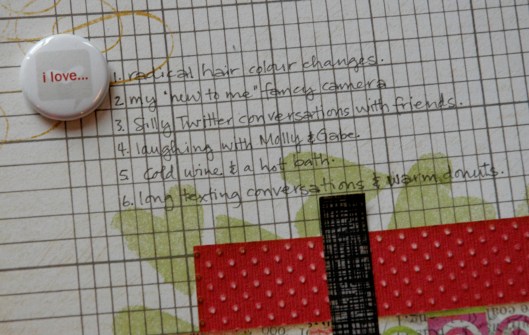 i love...
1. radical hair colour changes.
2 my "new to me" fancy camera
3. Silly Twitter conversations with friends.
4. laughing with Molly & Gabe.
5 Cold wine & a hot bath.
6. long texting conversations & warm donuts.